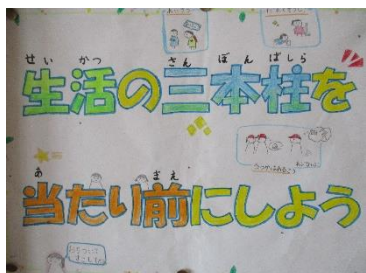 せいかつ さんぼんばしら
生活の三本柱を
あ まえ
当たり前にしよう